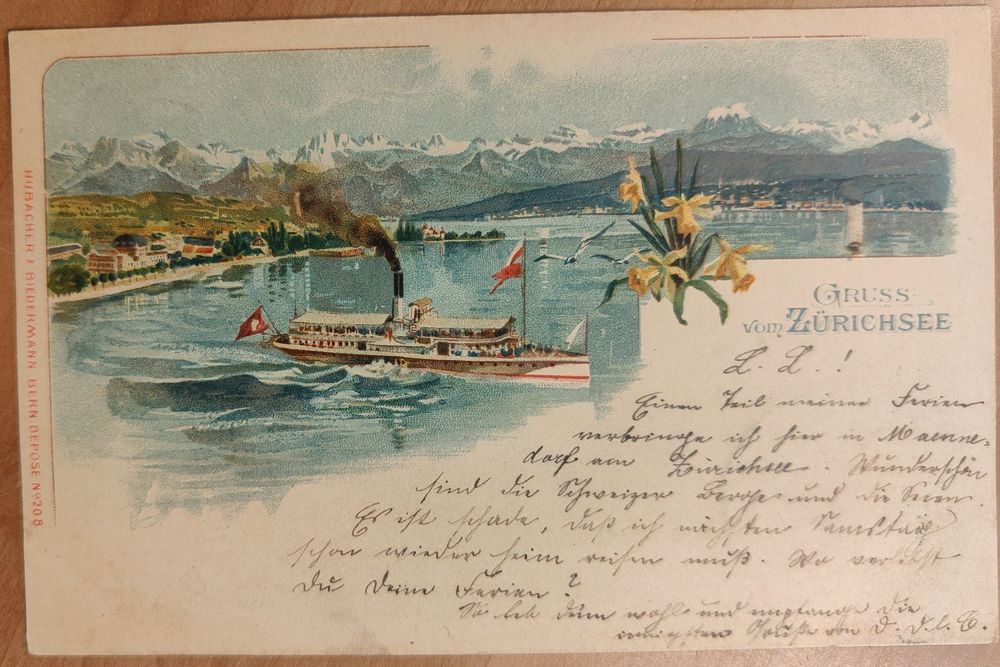 HUBACHER & BIEDERMANN BERN DEPOSE Nº 208
GRUSS
VOM ZÜRICHSEE
L. L. !
Einen Teil meiner Ferien
verbringe ich hier in Maenne-
dorf am Zürichsee. Wunderschön
sind die Schweizer Berge und die Seen
Es ist schade, daß ich nächsten Samstag
schon wieder heim reisen muß. Wo verlebst
Du Deine Ferien?
So leb denn wohl und empfange die
innigsten Grüße von D. D. l. C.